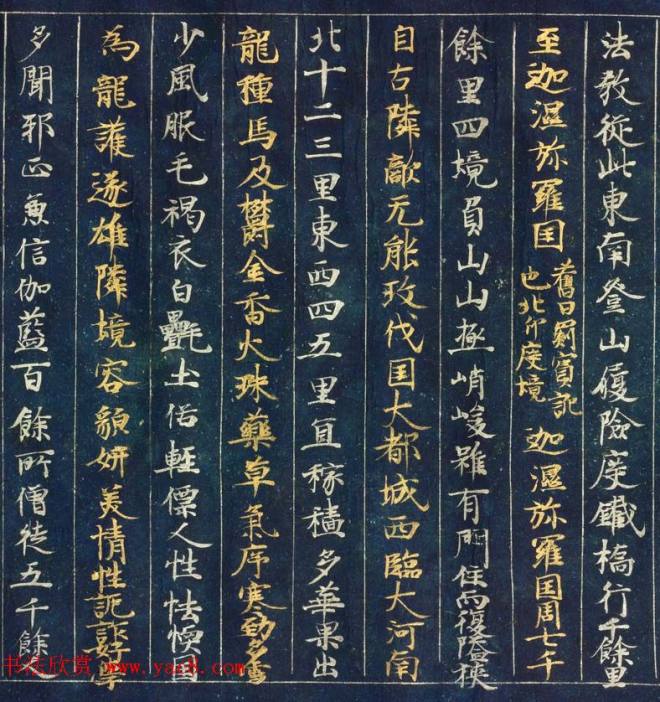 法教從此東南登山履險度鐵橋行千餘里
至迦濕弥羅国舊曰罽賓訛也北印度境迦濕弥羅国周七千
餘里四境負山山極峭峻雖有門徑而復隘狹
自古隣敵无能攻伐国大都城西臨大河南
北十二三里東西四五里宜稼穡多華果出
龍種馬及欝金香火珠藥草氣序寒勁多雪
少風服毛褐衣白疊土俗輕僄人性怯懦国
為龍護遂雄隣境容貌妍美情性詭詐好學
多聞邪正兼信伽藍百餘所僧徒五千餘人
书法欣赏 www.yac8.com